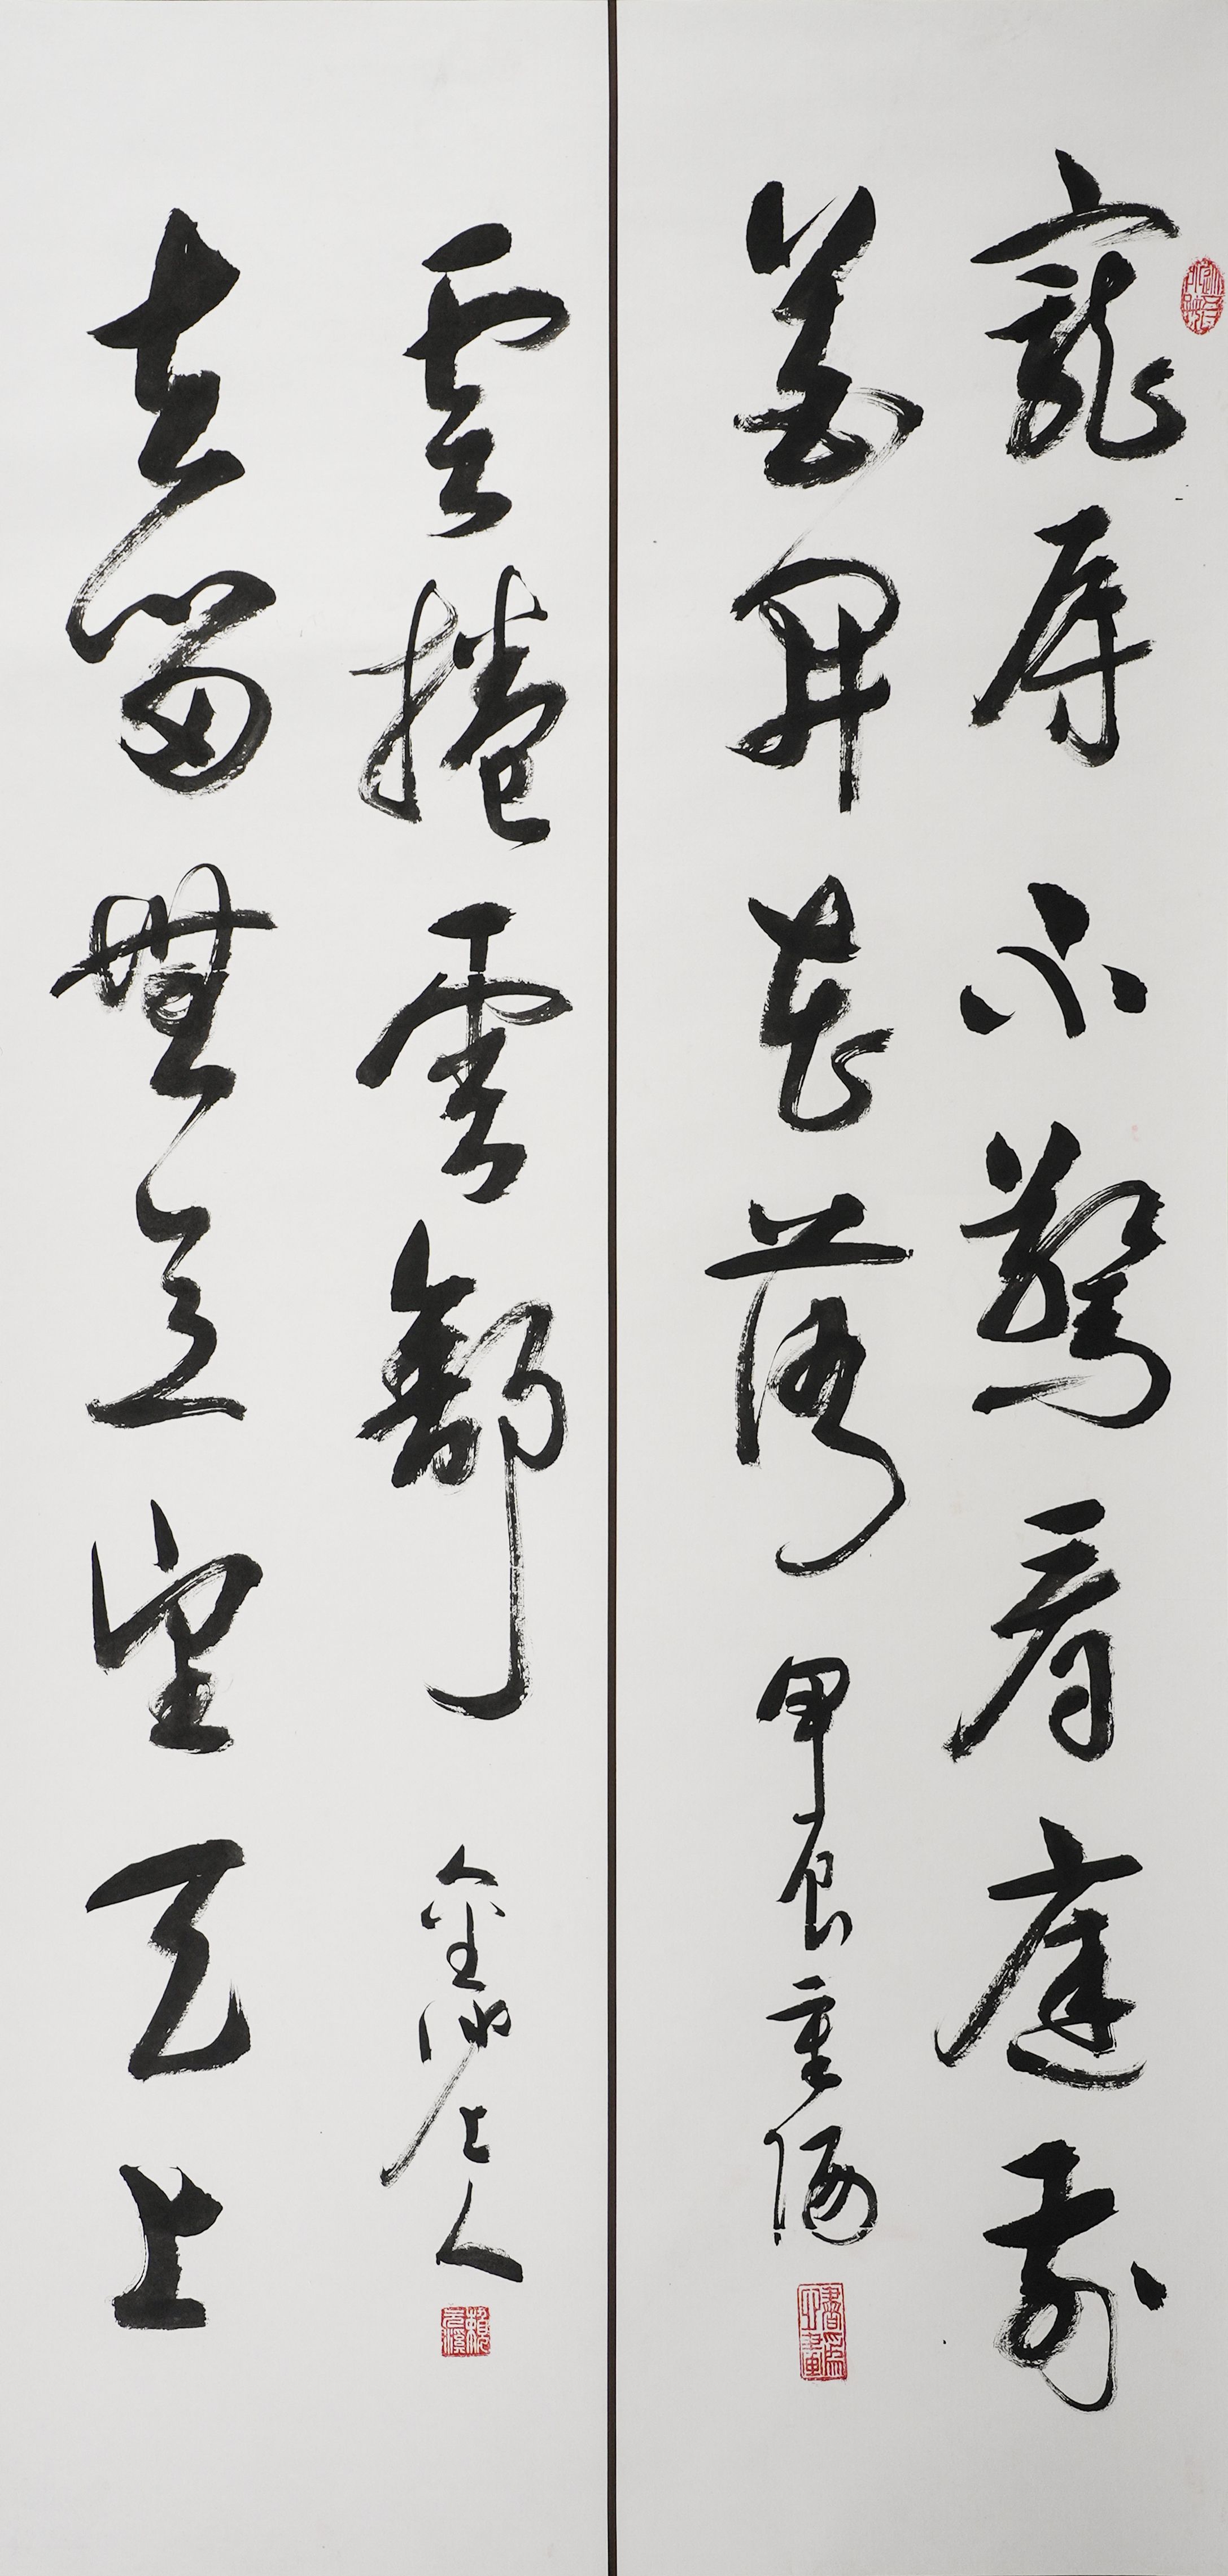 寵辱不驚看庭前
花開花落 甲辰重陽
書為心畫
去留無意望天上
雲捲雲舒 上人